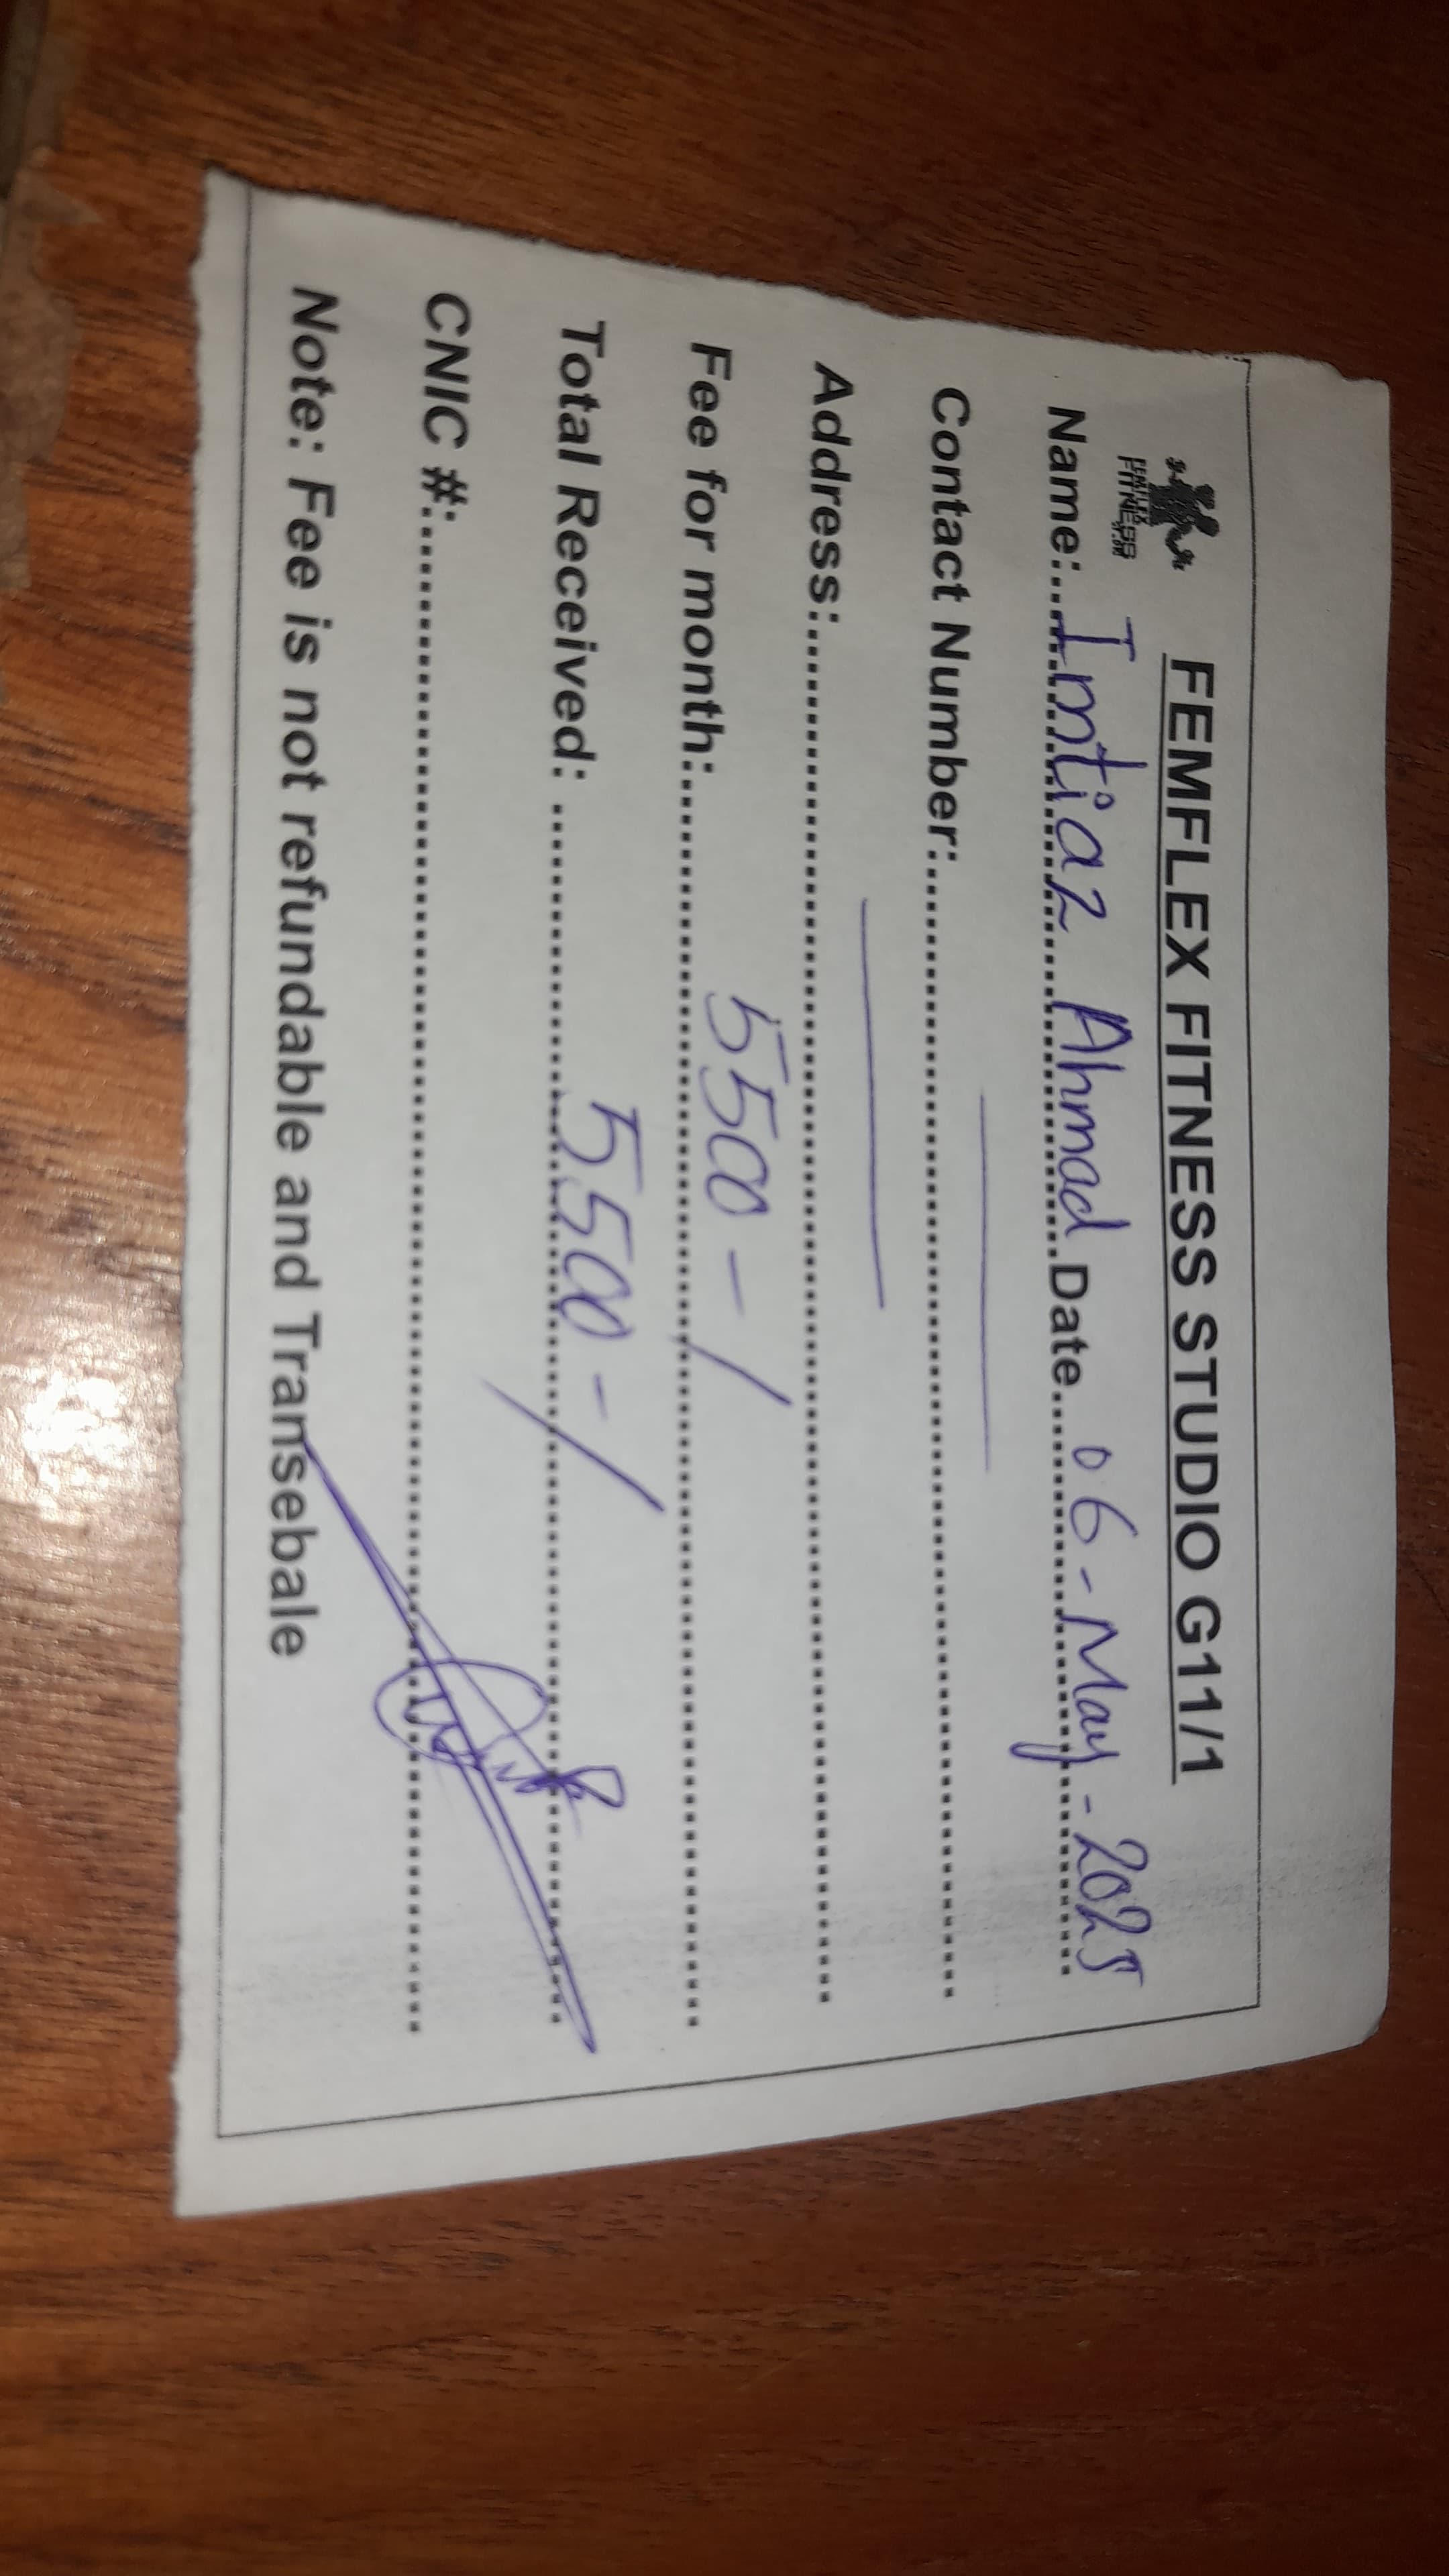 FEMFLEX FITNESS STUDIO G11/1
FITNESS
Name:....Imtiaz Ahmad....Date....06-May-2025
Contact Number:....
Address:....
Fee for month:....5500-/
Total Received: ....5500-/
CNIC #:....
Note: Fee is not refundable and Transebale